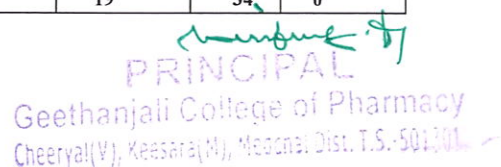 19 34 0
PRINCIPAL
Geethanjali College of Pharmacy
Cheeryal(V), Keesara(M), Medchal Dist. T.S.-501301